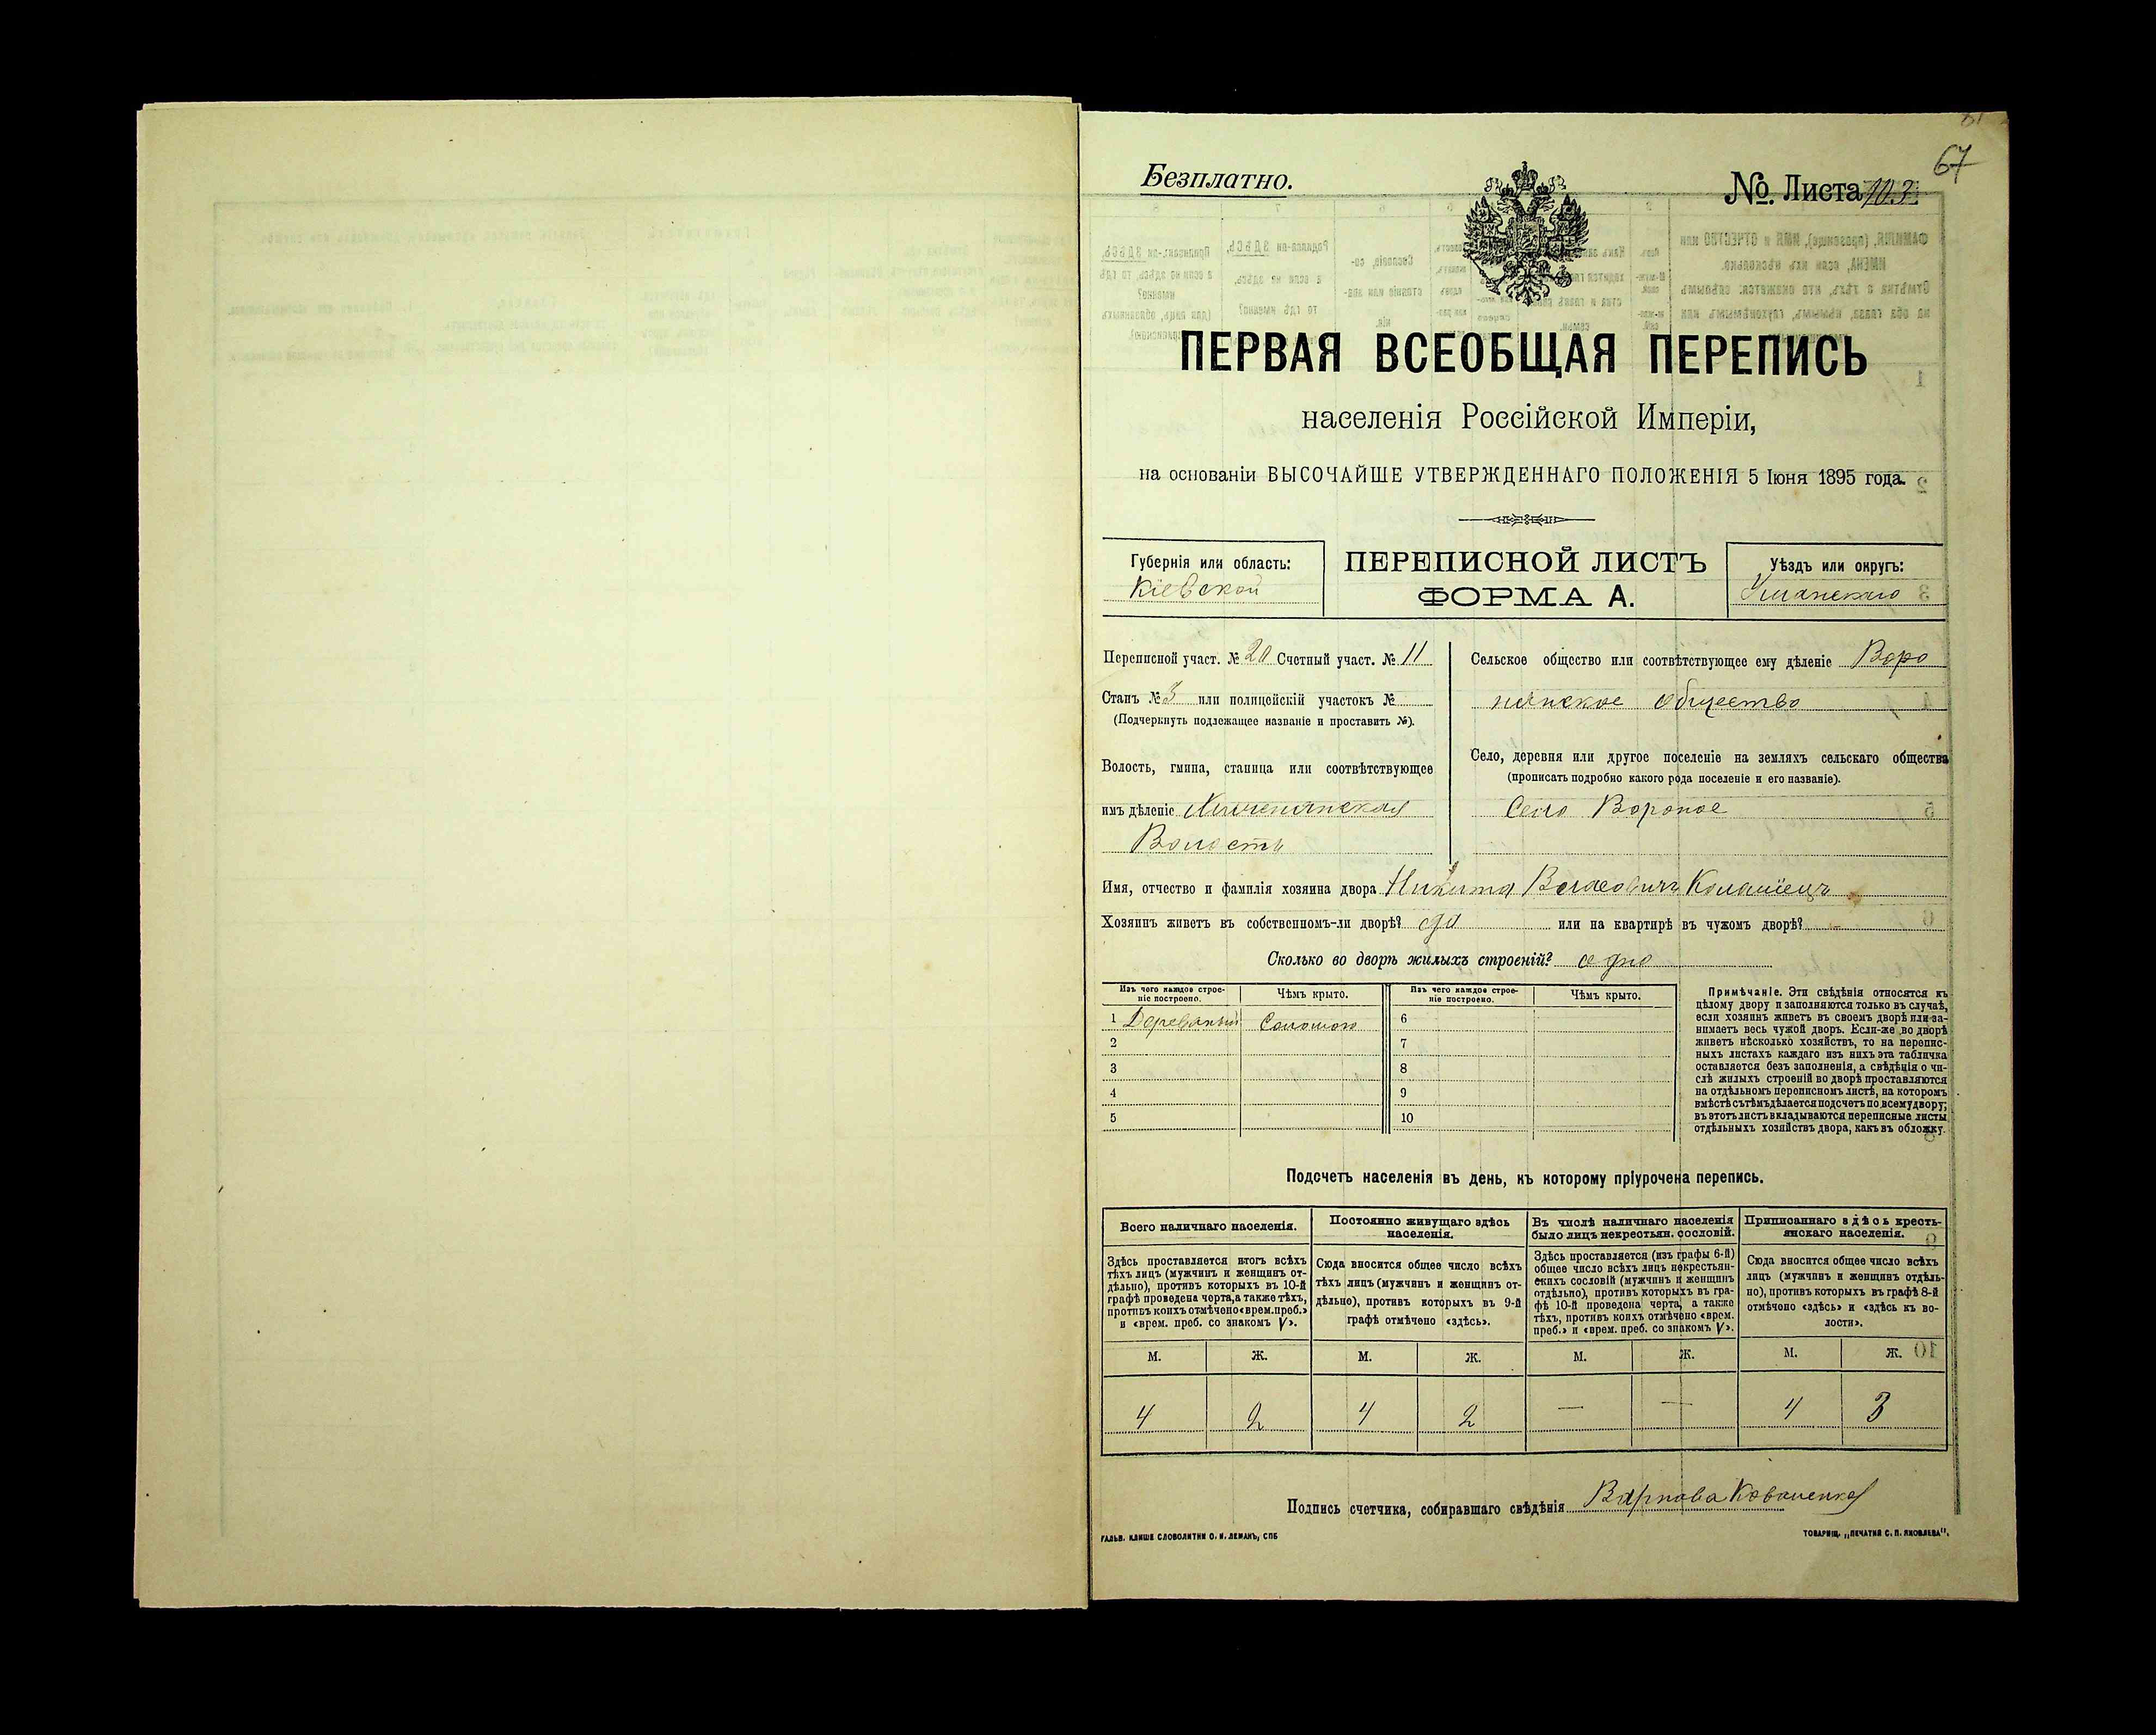 67
Безплатно.
№ Листа 103
ПЕРВАЯ ВСЕОБЩАЯ ПЕРЕПИСЬ
населенія Россійской Имперіи,
на основаніи ВЫСОЧАЙШЕ УТВЕРЖДЕННАГО ПОЛОЖЕНІЯ 5 Іюня 1895 года.
Губернія или область:
Кіевской
ПЕРЕПИСНОЙ ЛИСТЪ
ФОРМА А.
Уѣздъ или округъ:
Уманскаго
Переписной участ. № 20 Счетный участ. № 11
Станъ № 3 или полицейскій участокъ №
(Подчеркнуть подлежащее названіе и проставить №).
Волость, гмина, станица или соотвѣтствующее
имъ дѣленіе
Волость
Сельское общество или соотвѣтствующее ему дѣленіе Воро
нянское общество
Село, деревня или другое поселеніе на земляхъ сельскаго общества
(прописать подробно какого рода поселеніе и его названіе).
Село Вороное
Имя, отчество и фамилія хозяина двора Никита Власовичъ Коломіецъ
Хозяинъ живетъ въ собственномъ-ли дворѣ? да или на квартирѣ въ чужомъ дворѣ? —
Сколько во дворѣ жилыхъ строеній? одно
Изъ чего каждое строе-
ніе построено.
Чѣмъ крыто.
Изъ чего каждое строе-
ніе построено.
Чѣмъ крыто.
1 Деревяный Соломою 6
2 7
3 8
4 9
5 10
Примѣчаніе. Эти свѣдѣнія относятся къ
цѣлому двору и заполняются только въ случаѣ,
если хозяинъ живетъ въ своемъ дворѣ или за-
нимаетъ весь чужой дворъ. Если-же во дворѣ
живетъ нѣсколько хозяйствъ, то на перепис-
ныхъ листахъ каждаго изъ нихъ эта табличка
оставляется безъ заполненія, а свѣдѣнія о чи-
слѣ жилыхъ строеній во дворѣ проставляются
на отдѣльномъ переписномъ листѣ, на которомъ
вмѣстѣ съ тѣмъ дѣлается подсчетъ по всему двору;
въ этотъ листъ вкладываются переписные листы
отдѣльныхъ хозяйствъ двора, какъ въ обложку.
Подсчетъ населенія въ день, къ которому пріурочена перепись.
Всего наличнаго населенія.
Здѣсь проставляется итогъ всѣхъ
тѣхъ лицъ (мужчинъ и женщинъ от-
дѣльно), противъ которыхъ въ 10-й
графѣ проведена черта, а также тѣхъ,
противъ коихъ отмѣчено «врем. преб.»
и «врем. преб. со знакомъ V».
Постоянно живущаго здѣсь
населенія.
Сюда вносится общее число всѣхъ
тѣхъ лицъ (мужчинъ и женщинъ от-
дѣльно), противъ которыхъ въ 9-й
графѣ отмѣчено «здѣсь».
Въ числѣ наличнаго населенія
было лицъ некрестьян. сословій.
Здѣсь проставляется (изъ графы 6-й)
общее число всѣхъ лицъ некрестьян-
скихъ сословій (мужчинъ и женщинъ
отдѣльно), противъ которыхъ въ гра-
фѣ 10-й проведена черта, а также
тѣхъ, противъ коихъ отмѣчено «врем.
преб.» и «врем. преб. со знакомъ V».
Приписаннаго здѣсь кресть-
янскаго населенія.
Сюда вносится общее число всѣхъ
лицъ (мужчинъ и женщинъ отдѣль-
но), противъ которыхъ въ графѣ 8-й
отмѣчено «здѣсь» и «здѣсь къ во-
лости».
М. Ж. М. Ж. М. Ж. М. Ж.
4 2 4 2 — — 4 3
Подпись счетчика, собиравшаго свѣдѣнія Варнава Коваленко
ГАЛЬВ. КЛИШЕ СЛОВОЛИТНИ О. И. ЛЕМАНЪ, СПБ
ТОВАРИЩ. „ПЕЧАТНЯ С. П. ЯКОВЛЕВА".